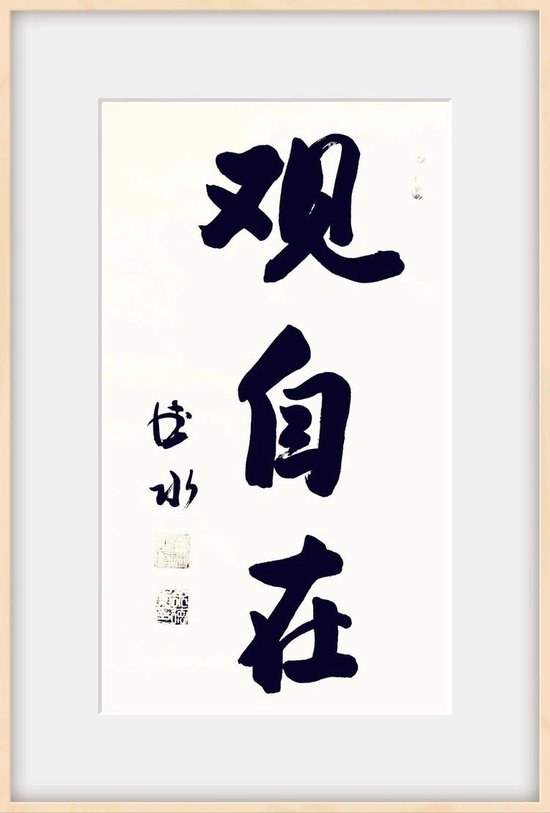 观自在
德水